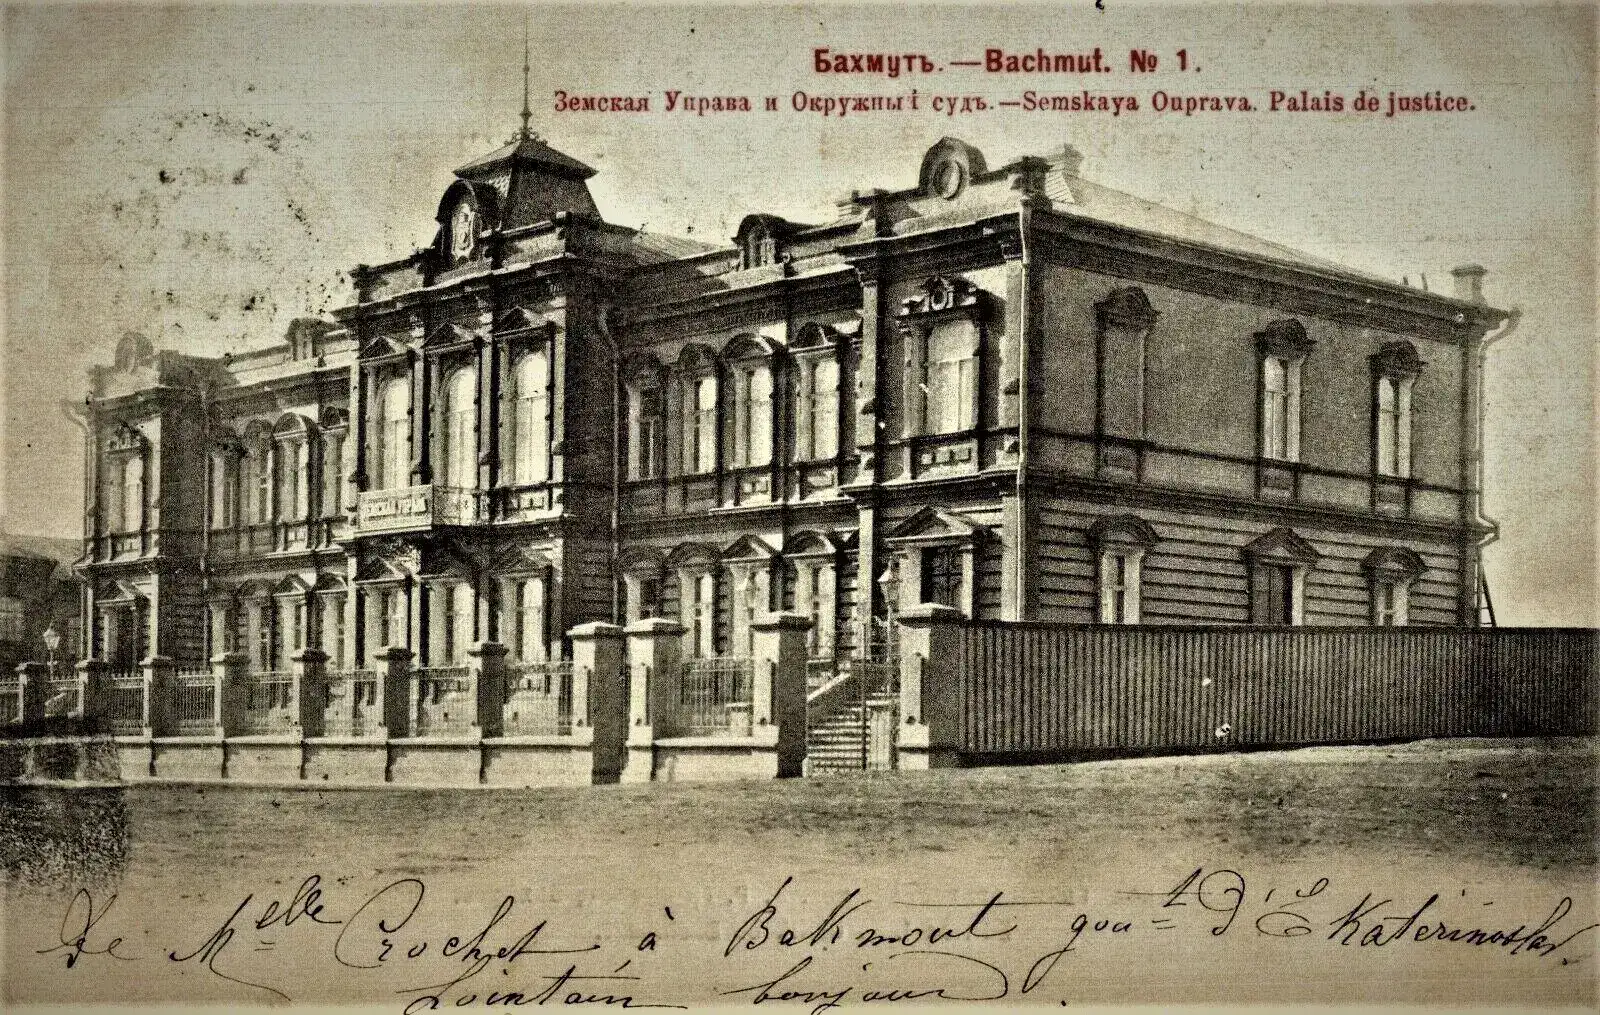 Бахмутъ.—Bachmut. № 1.
Земская Управа и Окружны і судъ.—Semskaya Ouprava. Palais de justice.
ЗЕМСКАЯ УПРАВА
De Melle Crochet à Bakmout gout d'Ekaterinoslav.
Lointain bonjour.